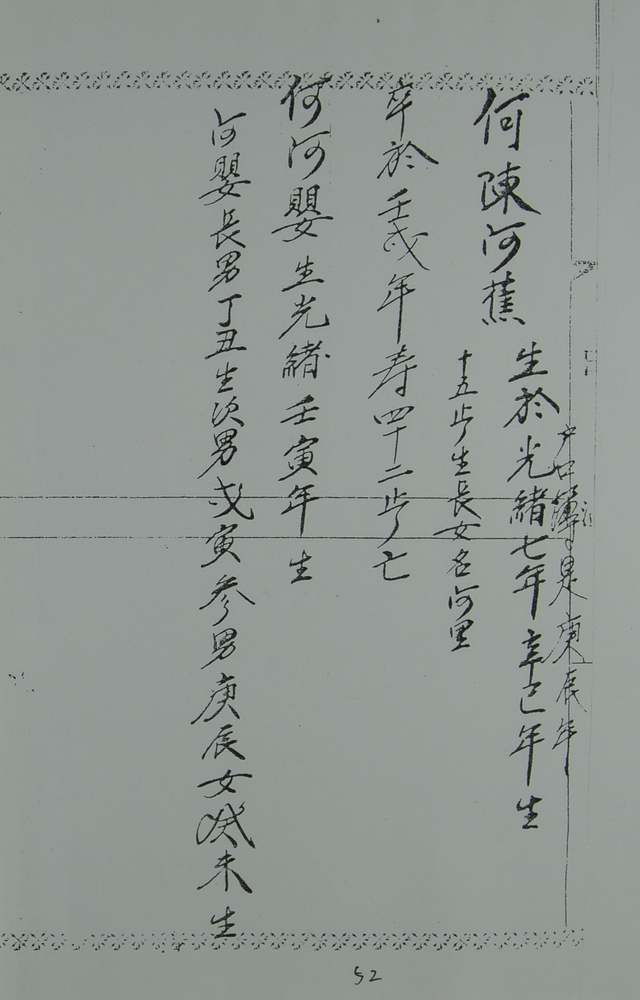 戶口簿是庚辰年
何陳何蕉 生於光緒七年辛巳年生
十五歩生長女名何里
卒於壬戌年寿四十二歩亡
何何嬰 生光緒壬寅年生
何嬰長男丁丑生次男戊寅参男庚辰女癸未生
52